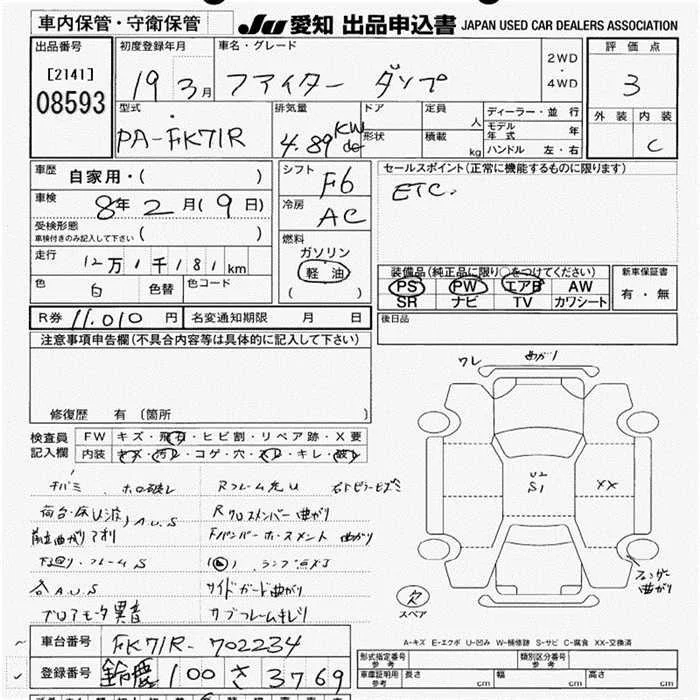 車内保管・守衛保管
JU 愛知 出品申込書 JAPAN USED CAR DEALERS ASSOCIATION
出品番号
[2141]
08593
初度登録年月
19 3月
車名・グレード
ファイター ダンプ
2WD
・
4WD
評価点
3
外装 内装
C
型式
PA-FK71R
排気量
4.89 KW
ドア
形状
定員
人
積載
kg
ディーラー・並行
モデル年式 年
ハンドル 左・右
車歴
自家用・( )
車検
8年2月(9日)
受検形態
車検付きのみ記入して下さい ( )
走行
12万1千181km
色
白
色替
色コード
シフト
F6
冷房
AC
燃料
ガソリン
軽油
( )
セールスポイント(正常に機能するものに限ります)
ETC.
装備品(純正品に限り○をつけてください)
PS PW エアB AW
SR ナビ TV カワシート
新車保証書
有・無
R券 11.010円 名変通知期限 月 日
後日品
注意事項申告欄(不具合内容等は具体的に記入して下さい)
修復歴 有(箇所 )
検査員
記入欄
FW キズ・飛石・ヒビ割・リペア跡・X要
内装 キズ・汚レ・コゲ・穴・スレ・キレ・破レ
チバミ ホロ破レ
Rフレーム先U
荷台・床U波) A.U.S
Rクロスメンバー曲がり
曲がりアオリ
Fバンパー 曲がり
下廻り・フレームS
ランプ点灯
各A.U.S
サイドガード曲がり
ブロアモータ異音
サブフレームキレ
ワレ
曲ガリ
U2
S1
XX
フェンダー
曲がり
欠
スペア
A-キズ E-エクボ U-凹み W-補修跡 S-サビ C-腐食 XX-交換済
車台番号 FK71R-702234
登録番号 鈴鹿 100 さ 3769
形式指定番号
参考
類別区分番号
参考
車庫証明用
参考
長さ cm
幅 cm
高さ cm